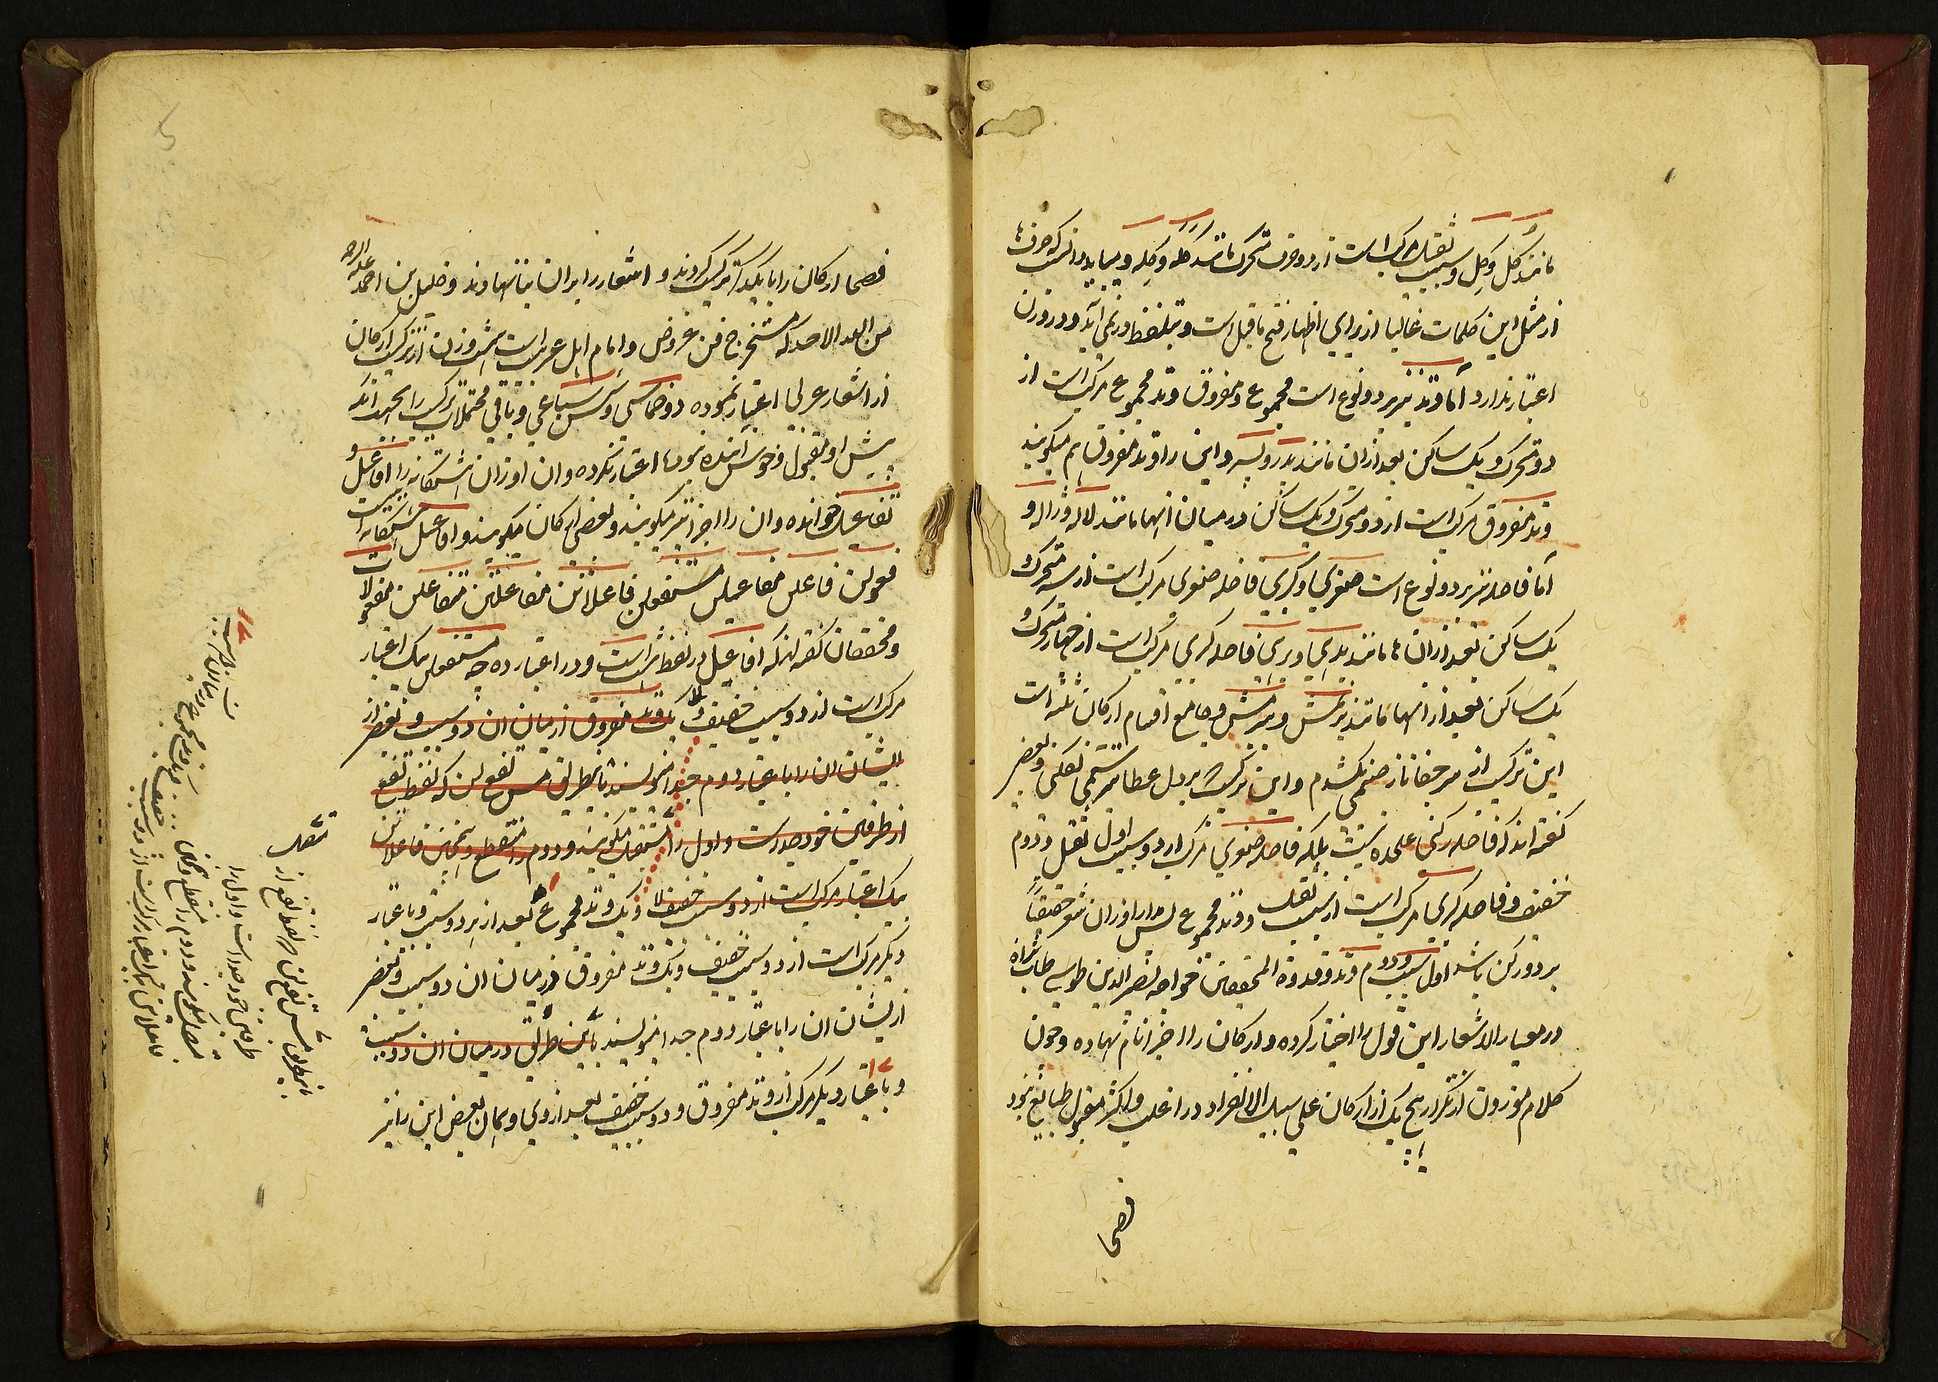 مانند کل و کل و سبب ثقیل مرکب است از دو حرف متحرک مانند کله و کله و میباید دانست که حرف ها
از مثل این کلمات غالبا از برای اظهار فتح ماقبل است و بتلفظ در نمی آید و در وزن
اعتبار ندارد اما وتد نیز بر دو نوع است مجموع و مفروق وتد مجموع مرکب است از
دو متحرک و یک ساکن بعد از آن مانند بدر و پسر و این را وتد مقرون هم میگویند
وتد مفروق مرکب است از دو متحرک و یک ساکن در میان آنها مانند لاله و ژاله و
اما فاصله نیز بر دو نوع است صغری و کبری فاصله صغری مرکب است از سه متحرک و
یک ساکن بعد از آن ها مانند بدی و بری فاصله کبری مرکب است از چهار متحرک و
یک ساکن بعد از آنها مانند بزنمش و ببرمش و جامع اقسام ارکان ثلثه است
این ترکیب از سر جفا ناز صنمی بکشدم و این ترکیب بر دل عطا ستمی نکنی و بعضی
گفته اند که فاصله رکنی علی حده نیست بلکه فاصله صغری مرکب از دو سبب اول ثقیل و دوم
خفیف و فاصله کبری مرکب است از سبب ثقیل و وتد مجموع پس مدار اوزان شعر حقیقتا
بر دو رکن باشد اول سبب و دوم وتد و قدوة المحققین خواجه نصیر الدین طوسی طاب ثراه
در معیار الاشعار این قول را اختیار کرده و ارکان را اجزا نام نهاده و چون
کلام موزون از تکرار هیچ یک از ارکان علی سبیل الانفراد در اغلب و اکثر مقبول طبایع نبود
فصحا
فصحا ارکان را با یکدیگر ترکیب کردند و اشعار را بر آن بنا نهادند و خلیل بن احمد علیه الرحمه
من الله الاحد که مستخرج فن عروض و امام اهل عربیت است هشت وزن از ترکیب ارکان
از اشعار عرب اعتبار نموده دو خماسی و شش سباعی و باقی محتملات ترکیب را بجهت آنکه
پیش او مقبول و خوش آینده نبود اعتبار نکرده و آن اوزان هشتگانه را افاعیل و
تفاعیل خوانده و آن را اجزا نیز میگویند و بعضی ارکان میگویند و افاعیل هشتگانه اینست
فعولن فاعلن مفاعیلن مستفعلن فاعلاتن مفاعلتن متفاعلن مفعولات
و محققان گفته اند که افاعیل در لفظ هشت است و در اعتبار ده چه مستفعلن بیک اعتبار
مرکب است از دو سبب خفیف و یک وتد مفروق از میان آن دو سبب و بعضی از
ایشان آن را باعتبار دوم جدا نویسند باینطریق مس تفع لن که لفظ تفع
از طرفین خود جداست و اول را متصل میگویند و دوم را منقطع و همچنین فاعلاتن
بیک اعتبار مرکب است از دو سبب خفیف و یک وتد مجموع بعد از هر دو سبب و باعتبار
دیگر مرکب است از دو سبب خفیف و یک وتد مفروق در میان آن دو سبب و بعضی
از ایشان آن را باعتبار دوم جدا نویسند باین طریق در میان آن دو سبب
و باعتبار دیگر مرکب از وتد مفروق و دو سبب خفیف بعد از وی و همان بعض این را نیز
متصل
باینطریق مس تفع لن که لفظ تفع از
طرفین خود جداست و اول را
متصل میگویند و دوم را منقطع و همچنین
فاعلاتن بیک اعتبار مرکب است از دو سبب خفیف